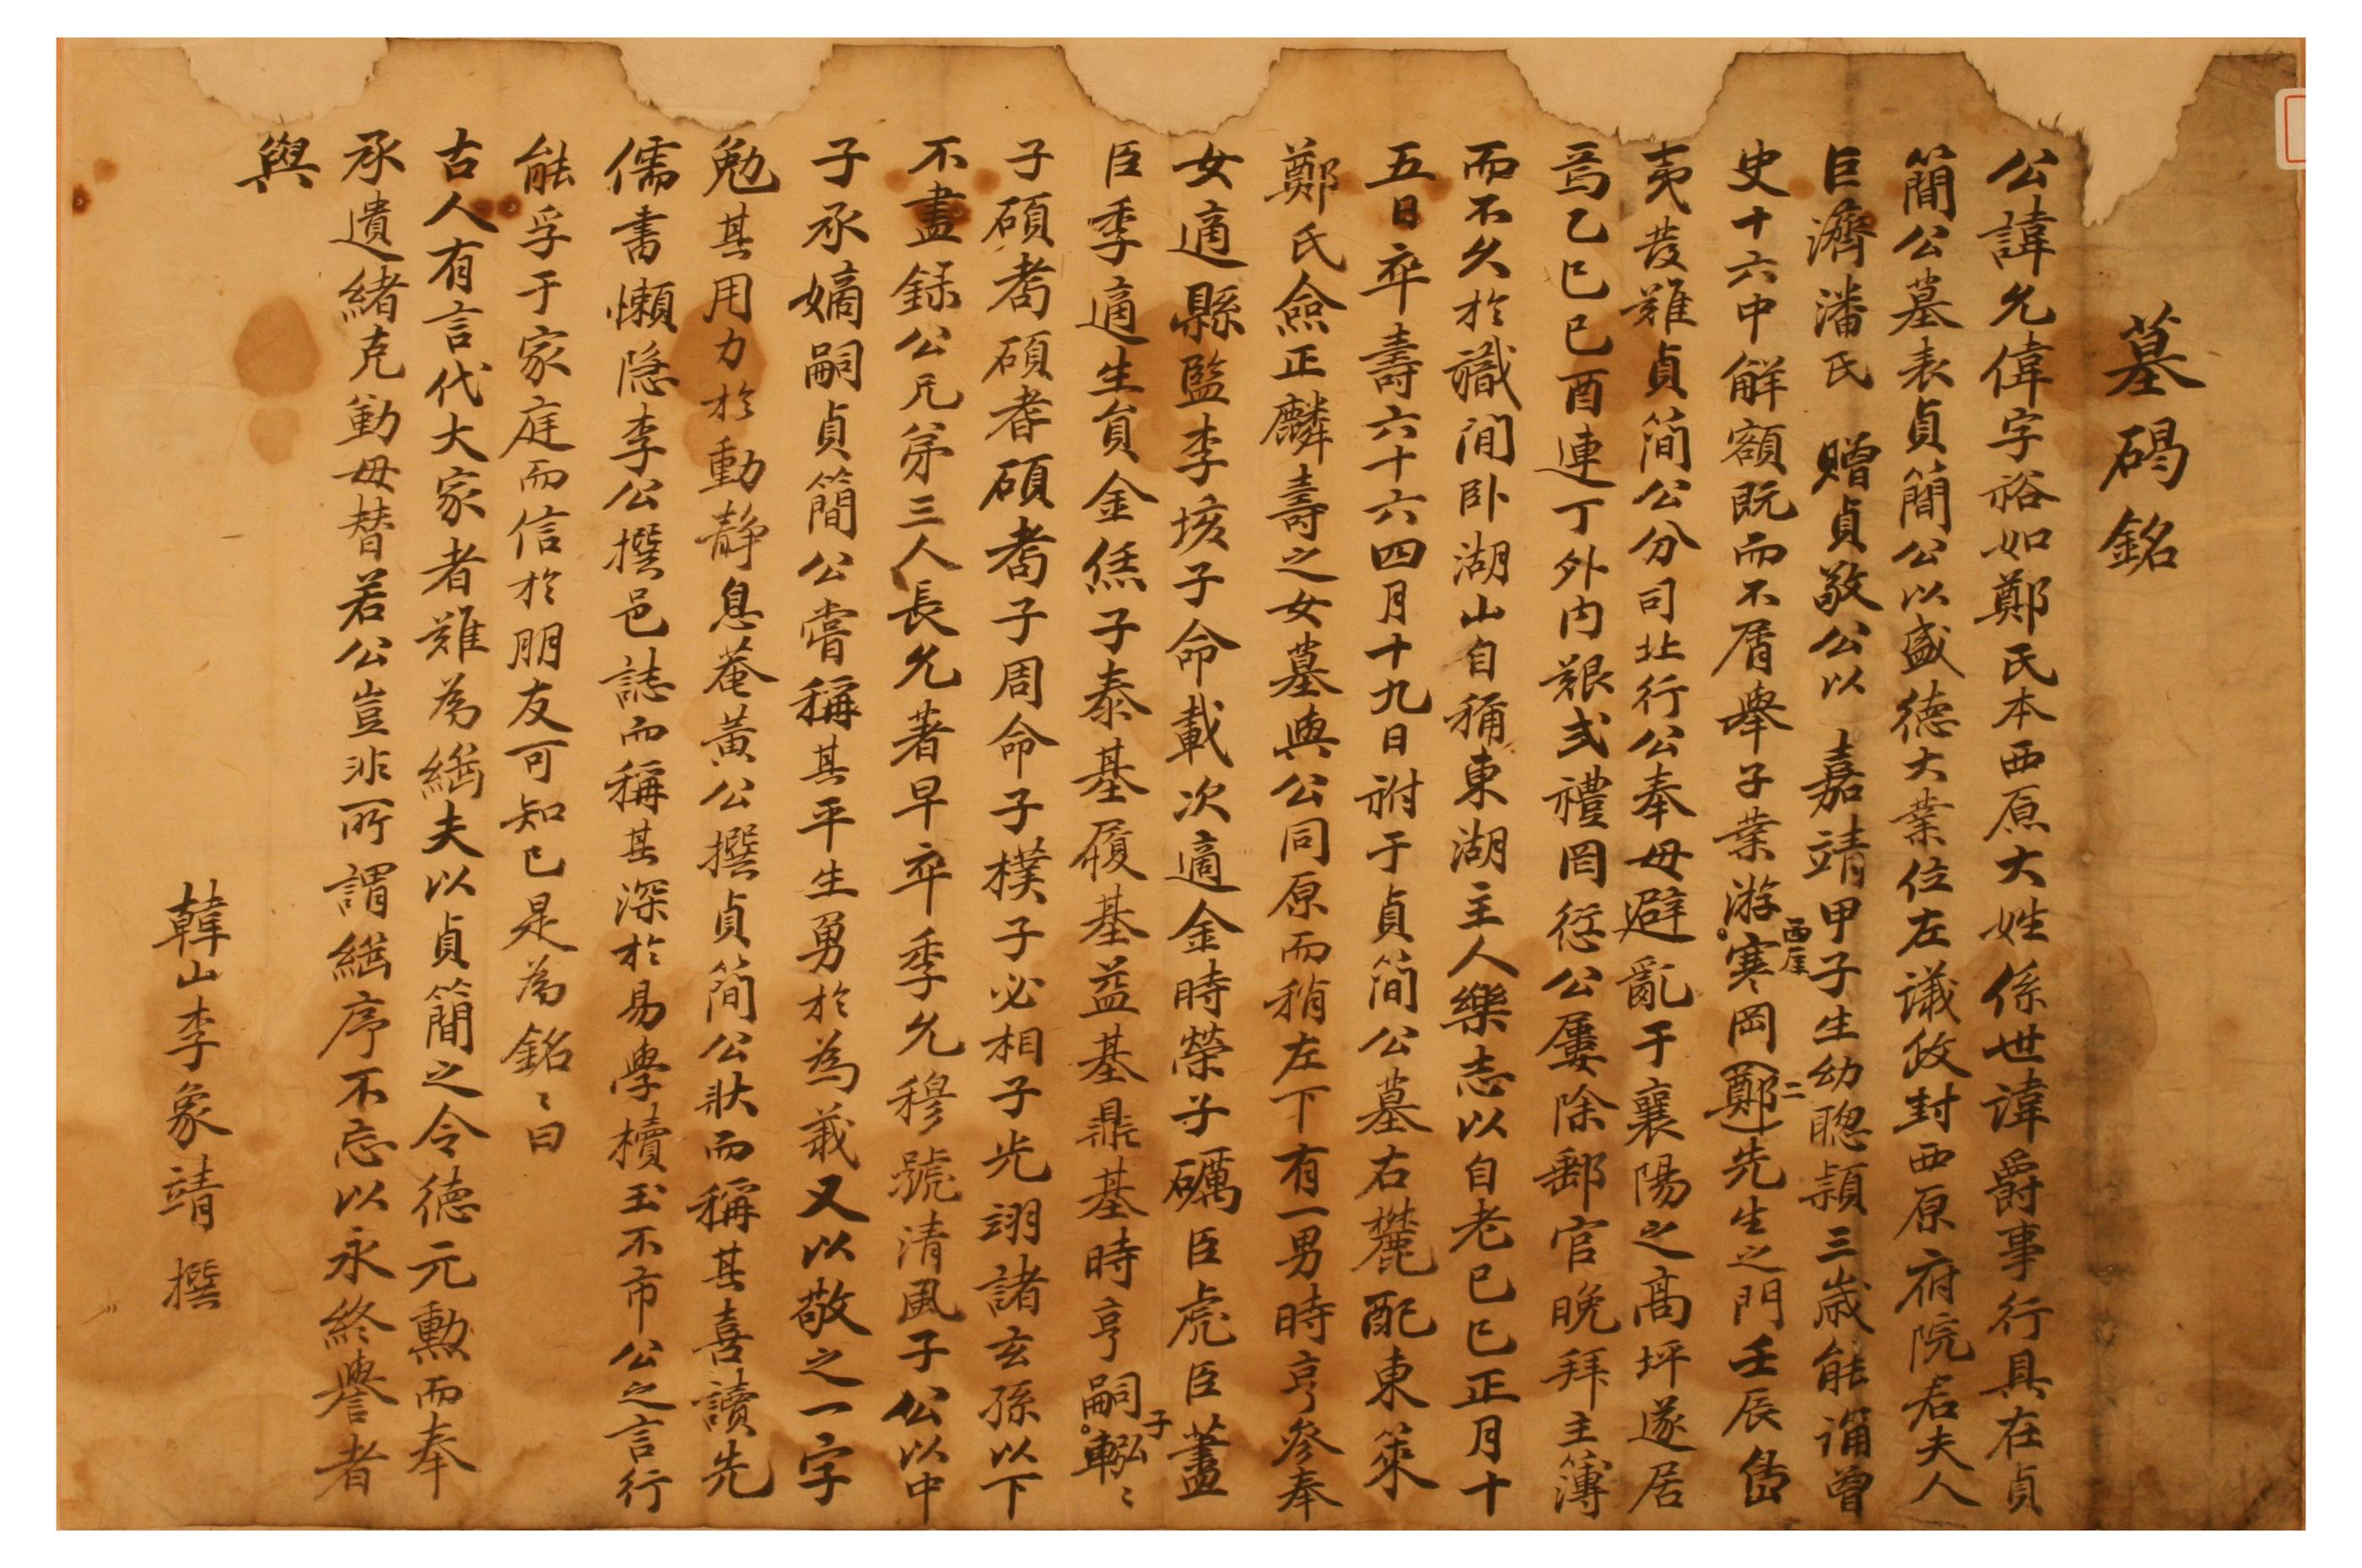 墓碣銘
公諱允偉字裕如鄭氏本西原大姓係世諱爵事行具在貞
簡公墓表貞簡公以盛德大業位左議政封西原府院君夫人
巨濟潘氏 贈貞敬公以 嘉靖甲子生幼聰穎三歲能誦曾
史十六中解額旣而不屑擧子業游西厓寒岡二鄭先生之門壬辰島
夷發難貞簡公分司北行公奉母避亂于襄陽之高坪遂居
焉乙巳己酉連丁外內艱式禮罔愆公屢除郵官晩拜主簿
而不久於職閒卧湖山自稱東湖主人樂志以自老己巳正月十
五日卒壽六十六四月十九日祔于貞簡公墓右麓配東萊
鄭氏僉正麟壽之女墓與公同原而稍左下有一男時亨參奉
女適縣監李垓子命載次適金時榮子礪臣虎臣藎
臣季適生員金恁子泰基履基益基鼎基時亨嗣子軺〻
子碩耈碩耆碩耇子周命子樸子必相子光翊諸玄孫以下
不盡錄公兄弟三人長允著早卒季允穆號清風子公以中
子承嫡嗣貞簡公嘗稱其平生勇於爲義又以敬之一字
勉其用力於動靜息菴黃公撰貞簡公狀而稱其喜讀先
儒書懶隱李公撰邑誌而稱其深於易學櫝玉不市公之言行
能孚于家庭而信於朋友可知已是為銘〻曰
古人有言代大家者難為繼夫以貞簡之令德元勳而奉
承遺緖克勤毋替若公豈非所謂繼序不忘以永終譽者
與
韓山李象靖撰